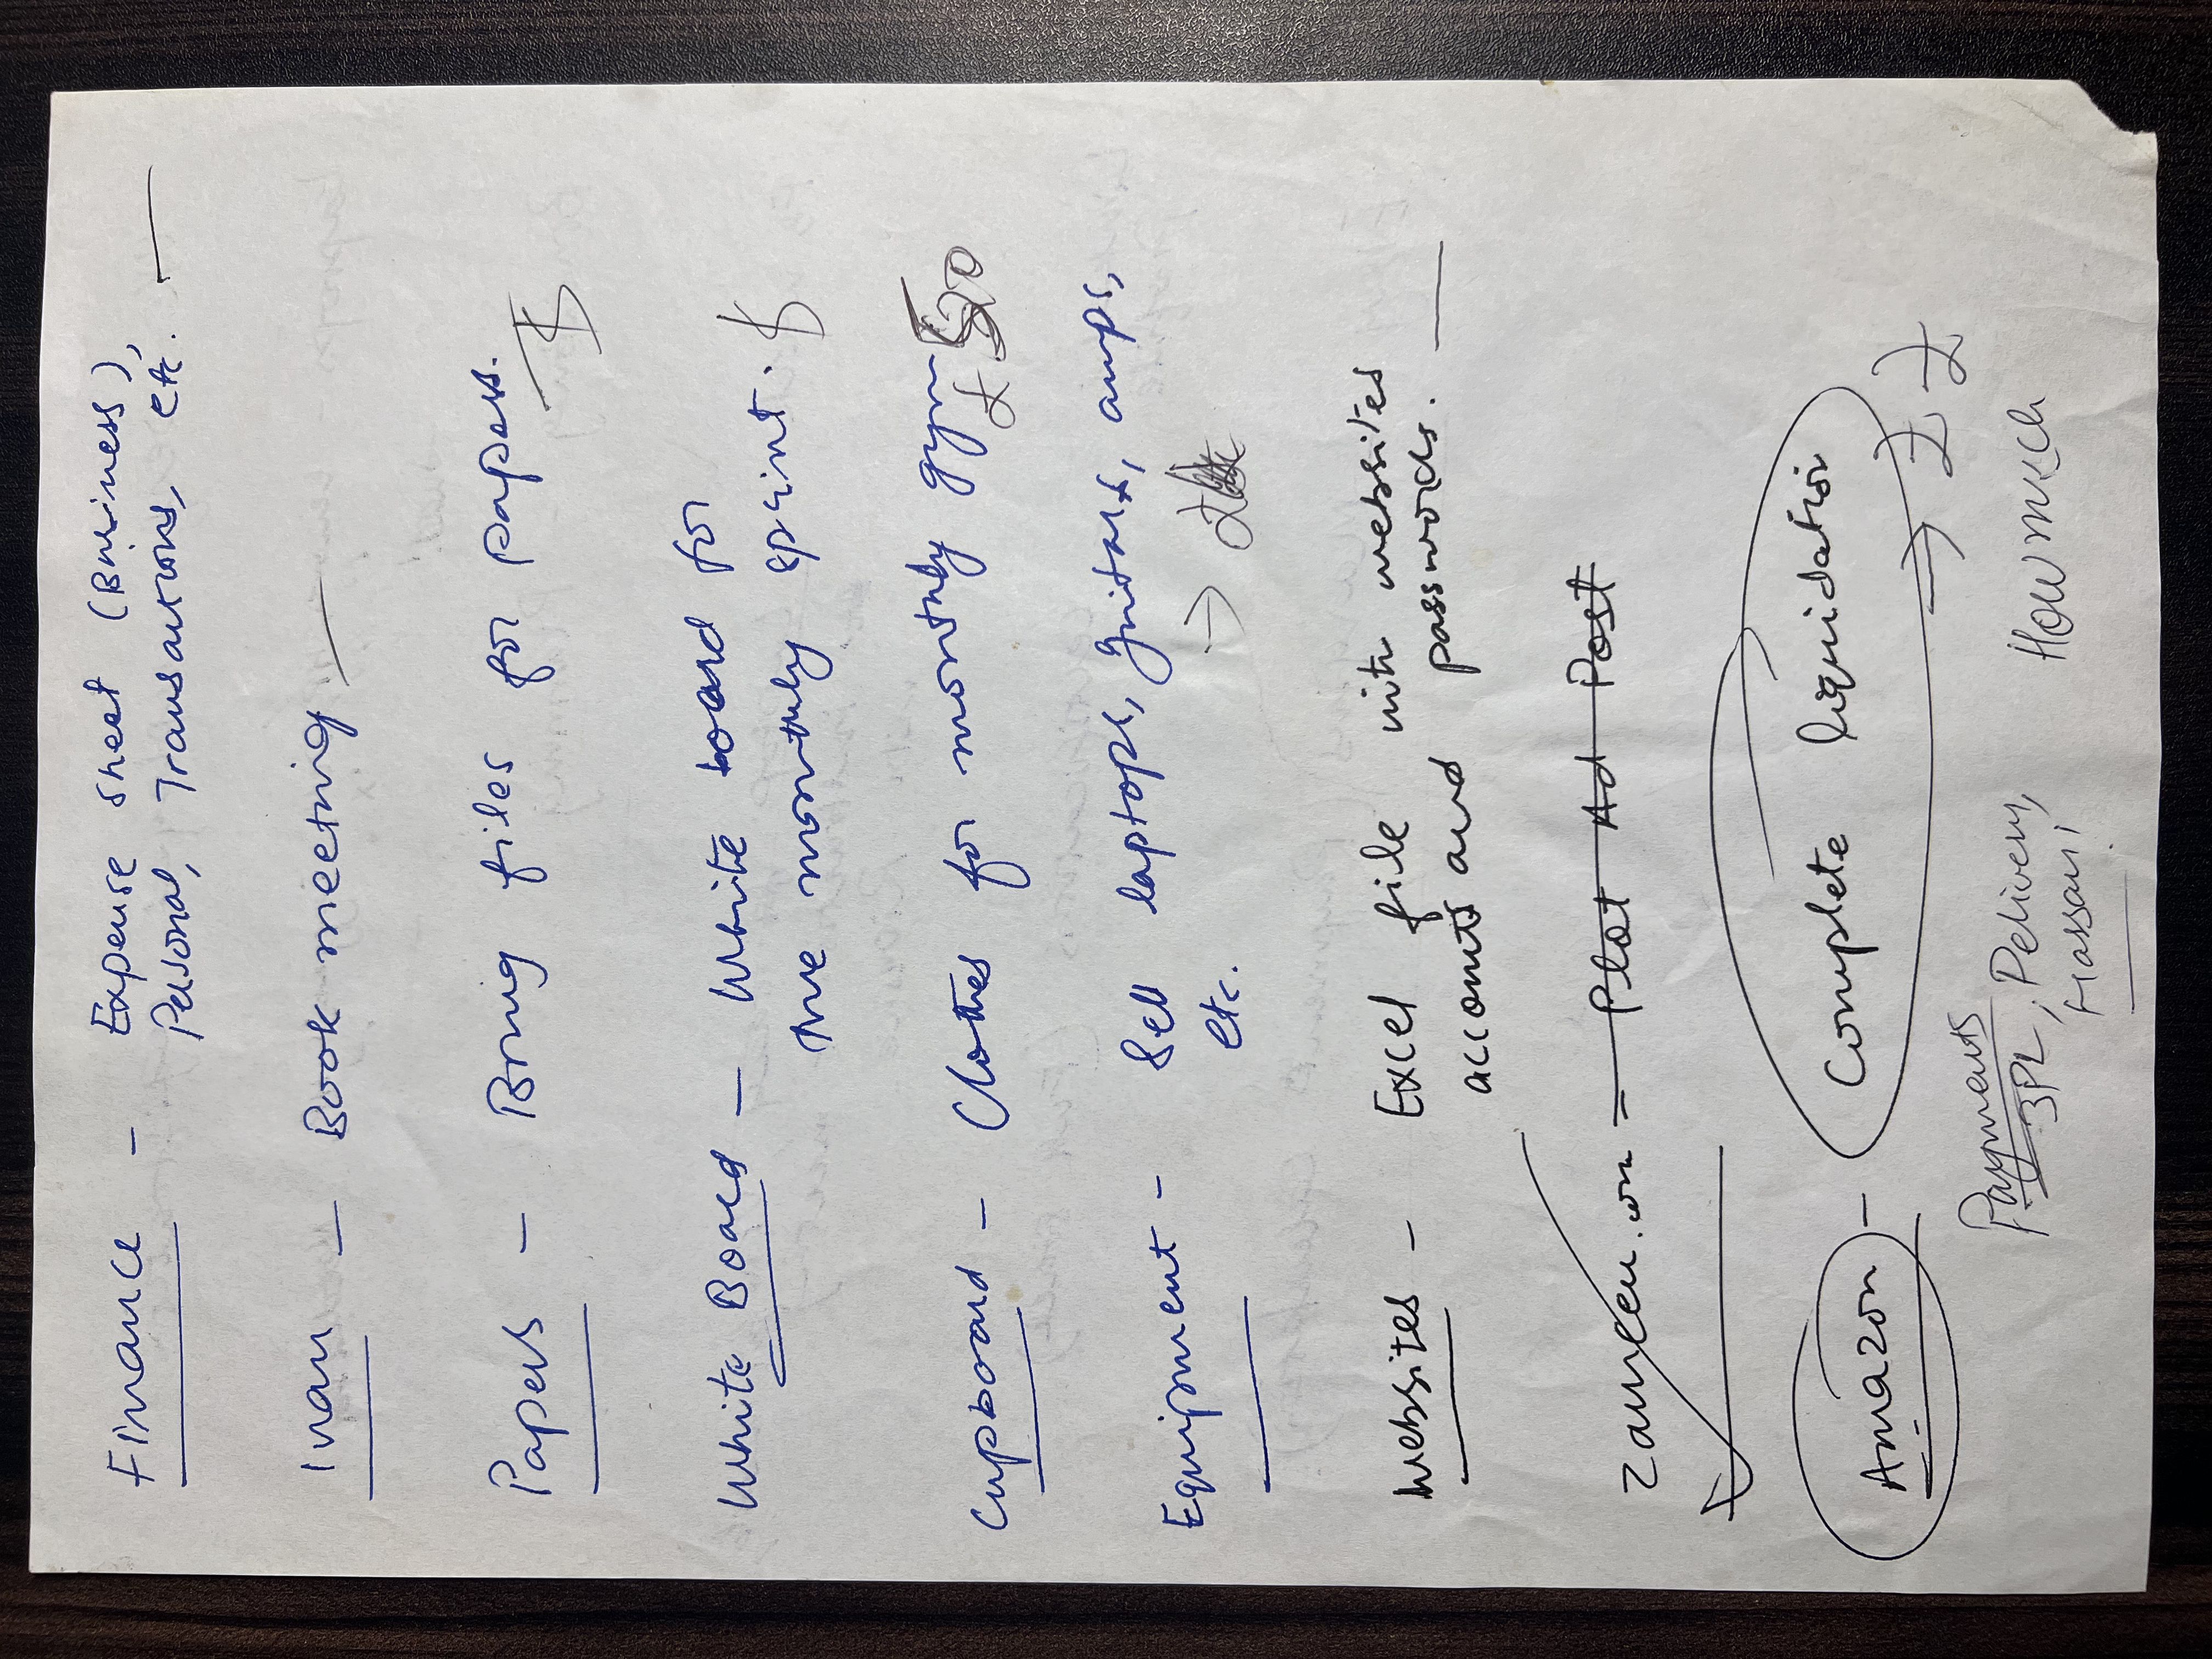 Finance - Expense sheet (Business),
Personal, Transactions, etc. —
Iman — Book meeting —
Papers - Bring files for papers.
£
White Board — White board for
the monthly sprint. £
Cupboard - Clothes for monthly gym
£ 50
Equipment - Sell laptops, guitars, amps,
etc. →
Websites - Excel file with websites
accounts and passwords. —
zameen.com = Plot Ad Post
Amazon - Complete liquidation
→ £ £
Payments
3PL, Delivery,
Hassan!
How much